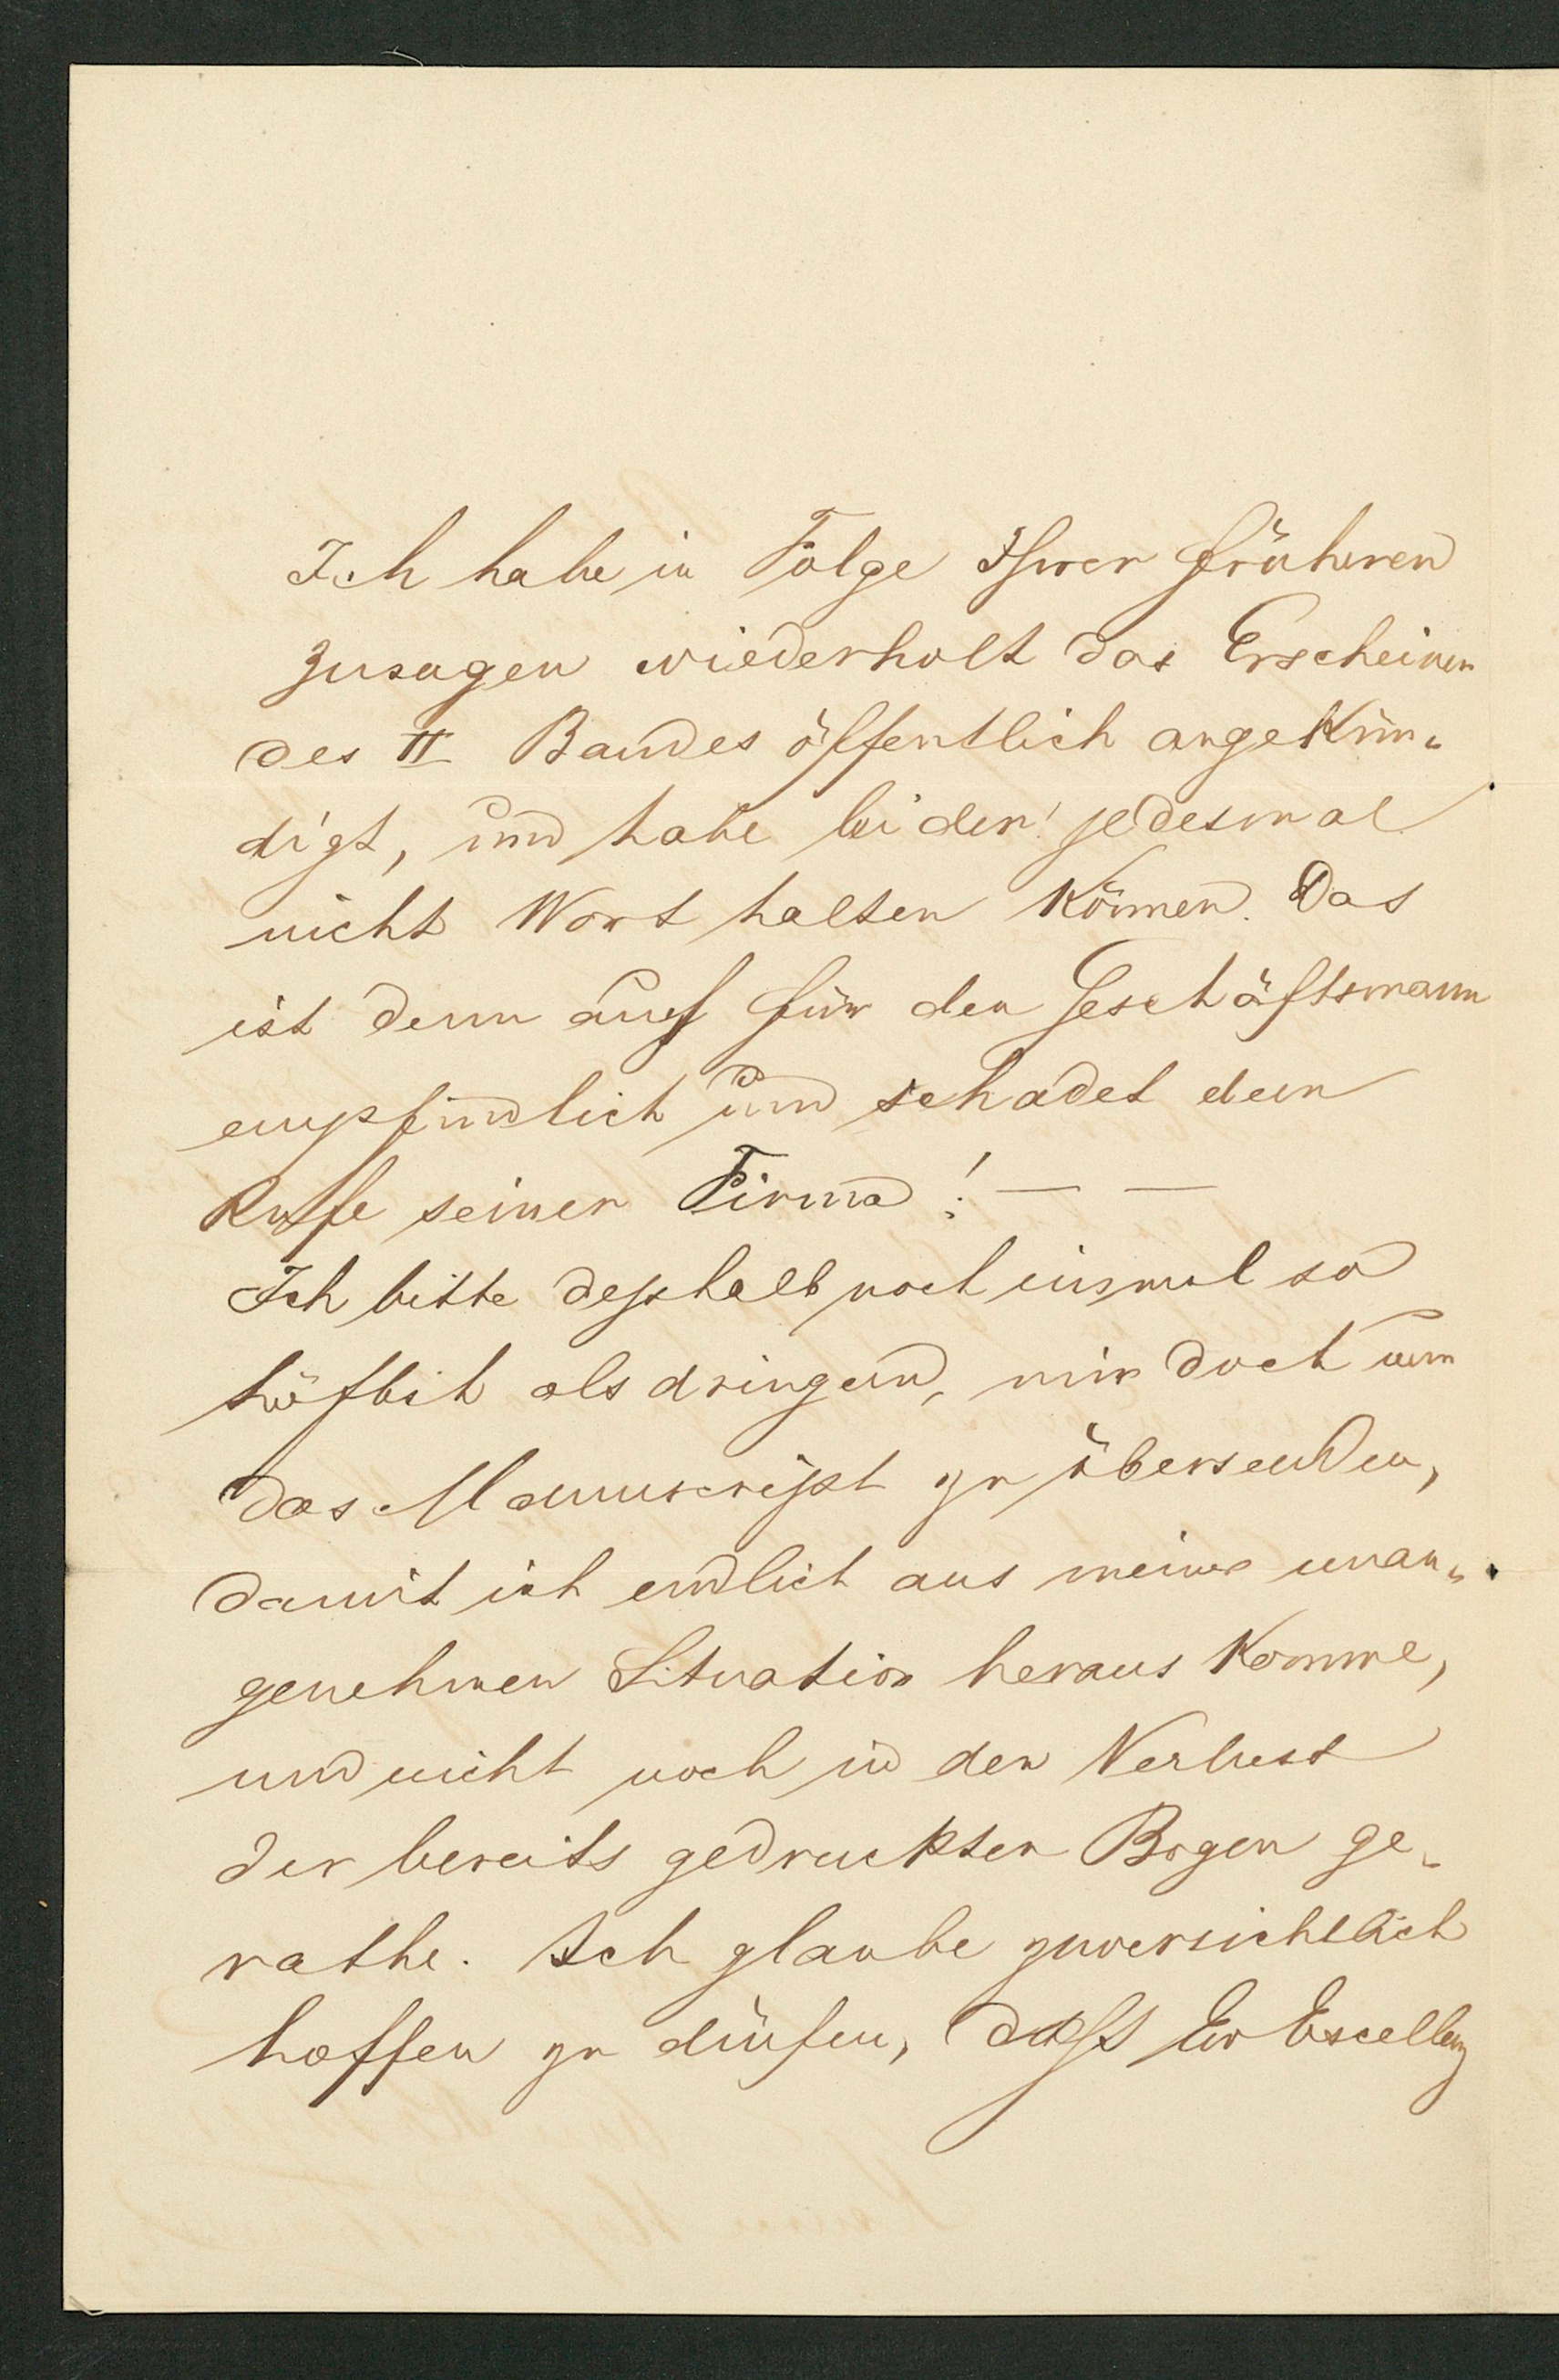 Ich habe in Folge Ihrer früheren
Zusagen wiederholt das Erscheinen
des II Bandes öffentlich angekün-
digt, und habe leider! jedesmal
nicht Wort halten können. Das
ist denn auch für den Geschäftsmann
empfindlich und schadet dem
Rufe seiner Firma! — —
Ich bitte desshalb noch einmal so
höflich als dringend, mir doch nun
das Manuscript zu übersenden,
damit ich endlich aus meiner unan-
genehmen Situation heraus komme,
und nicht noch in den Verlust
der bereits gedruckten Bogen ge-
rathe. Ich glaube zuversichtlich
hoffen zu dürfen, dass Ew Excellenz